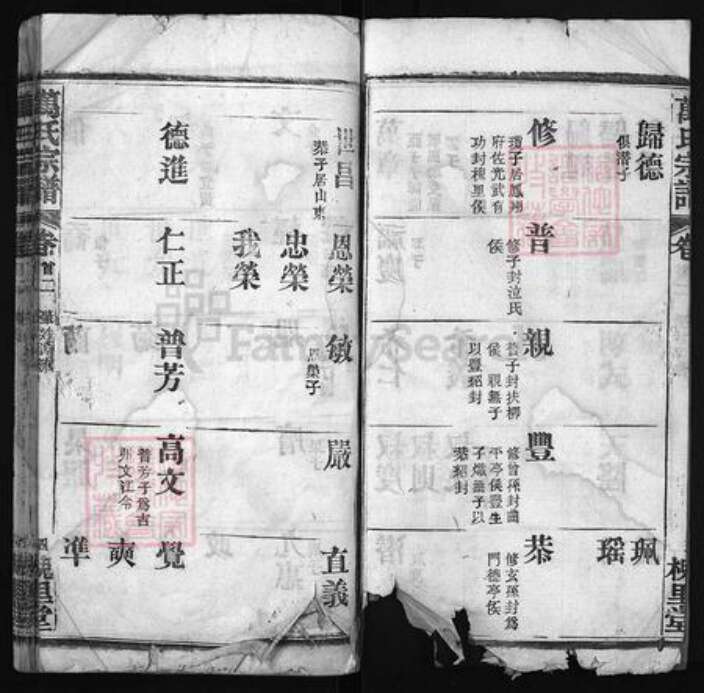 萬氏宗譜
卷
槐里堂
歸德
俱潛子
珮
瑶
修
瓊子居鳳翔
府佐光武有
功封槐里侯
普
修子封泫氏
侯
親
普子封扶柳
侯親無子
以豐紹封
豐
修曾孫封曲
平亭侯豐生
子熾無子以
恭紹封
恭
修玄孫封爲
門德亭侯
昌
恭子居山東
恩榮
忠榮
我榮
敏
恩榮子
嚴
直義
德進
仁正
普芳
高文
普芳子爲吉
州文江令
覺
奭
準
萬氏宗譜
卷首二
槐里堂
FamilySearch